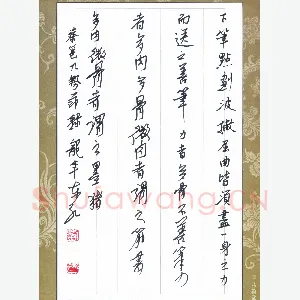 下笔點畫波撇屈曲皆須盡一身之力
而送之善筆力者多骨不善筆力
者多肉多骨微肉者謂之筋書
多肉微骨者謂之墨豬
蔡邕九勢 龍年